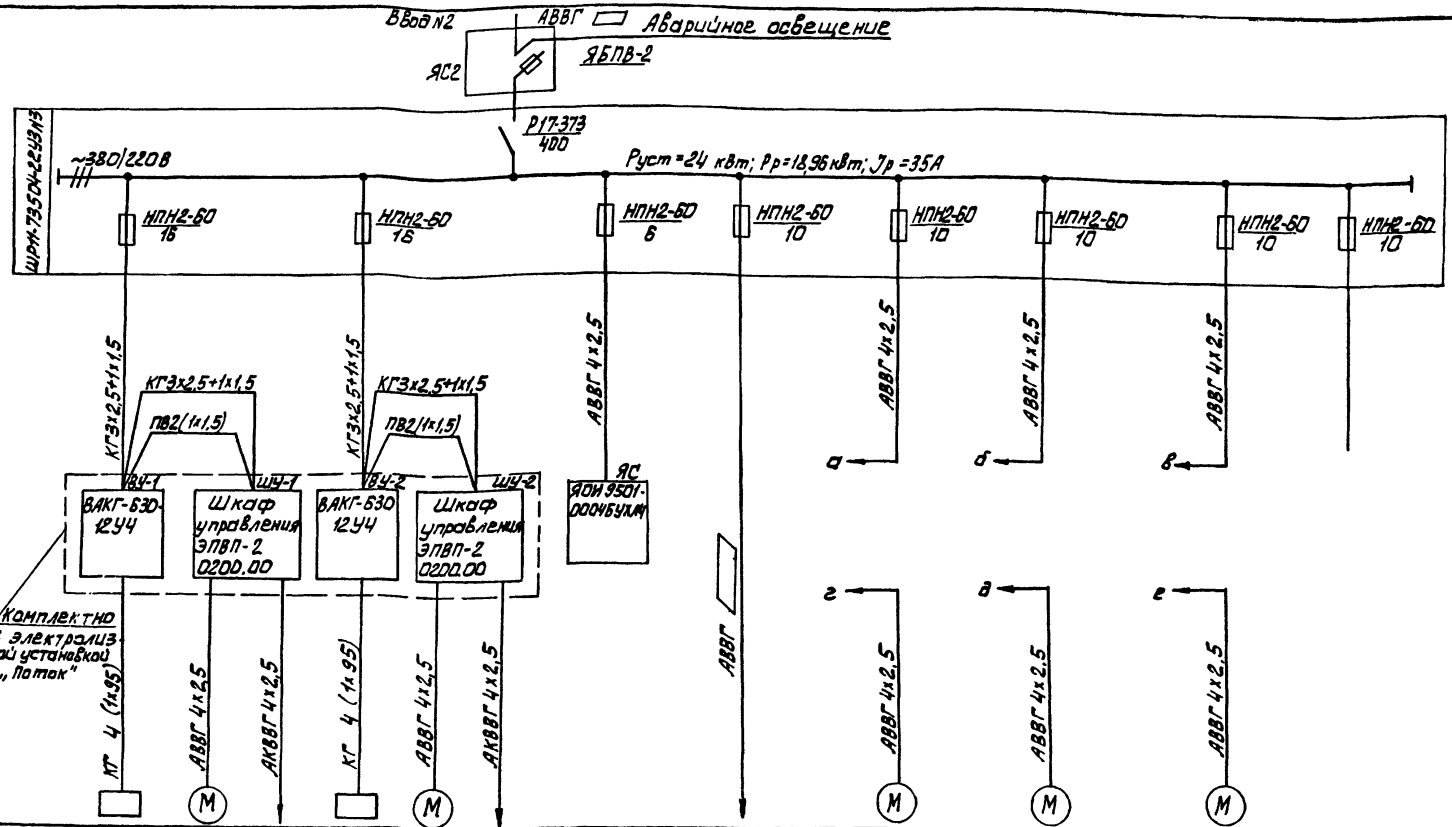 Ввод N2
АВВГ
Аварийное освещение
ЯБПВ-2
ЯС2
Р17-373
400
~380/220В
Руст=24 квт; Рр=18,96квт; Jр=35А
НПН2-60
16
НПН2-60
16
НПН2-60
6
НПН2-60
10
НПН2-60
10
НПН2-60
10
НПН2-60
10
НПН2-60
10
КГ3х2,5+1х1,5
КГ3х2,5+1х1,5
ПВ2(1х1,5)
КГ3х2,5+1х1,5
КГ3х2,5+1х1,5
ПВ2(1х1,5)
АВВГ 4х2,5
АВВГ 4х2,5
АВВГ 4х2,5
АВВГ 4х2,5
а
б
в
ВУ-1
ШУ-1
ВУ-2
ШУ-2
ЯС
ВАКГ-630-
12У4
Шкаф
управления
ЭПВП-2
0200.00
ВАКГ-630
12У4
Шкаф
управления
ЭПВП-2
0200.00
ЯОИ 9501-
г
д
е
Комплектно
с электролиз-
ной установкой
„Поток"
КГ 4 (1х95)
АВВГ 4х2,5
АКВВГ 4х2,5
КГ 4 (1х95)
АВВГ 4х2,5
АКВВГ 4х2,5
АВВГ
АВВГ 4х2,5
АВВГ 4х2,5
АВВГ 4х2,5
М
М
М
М
М